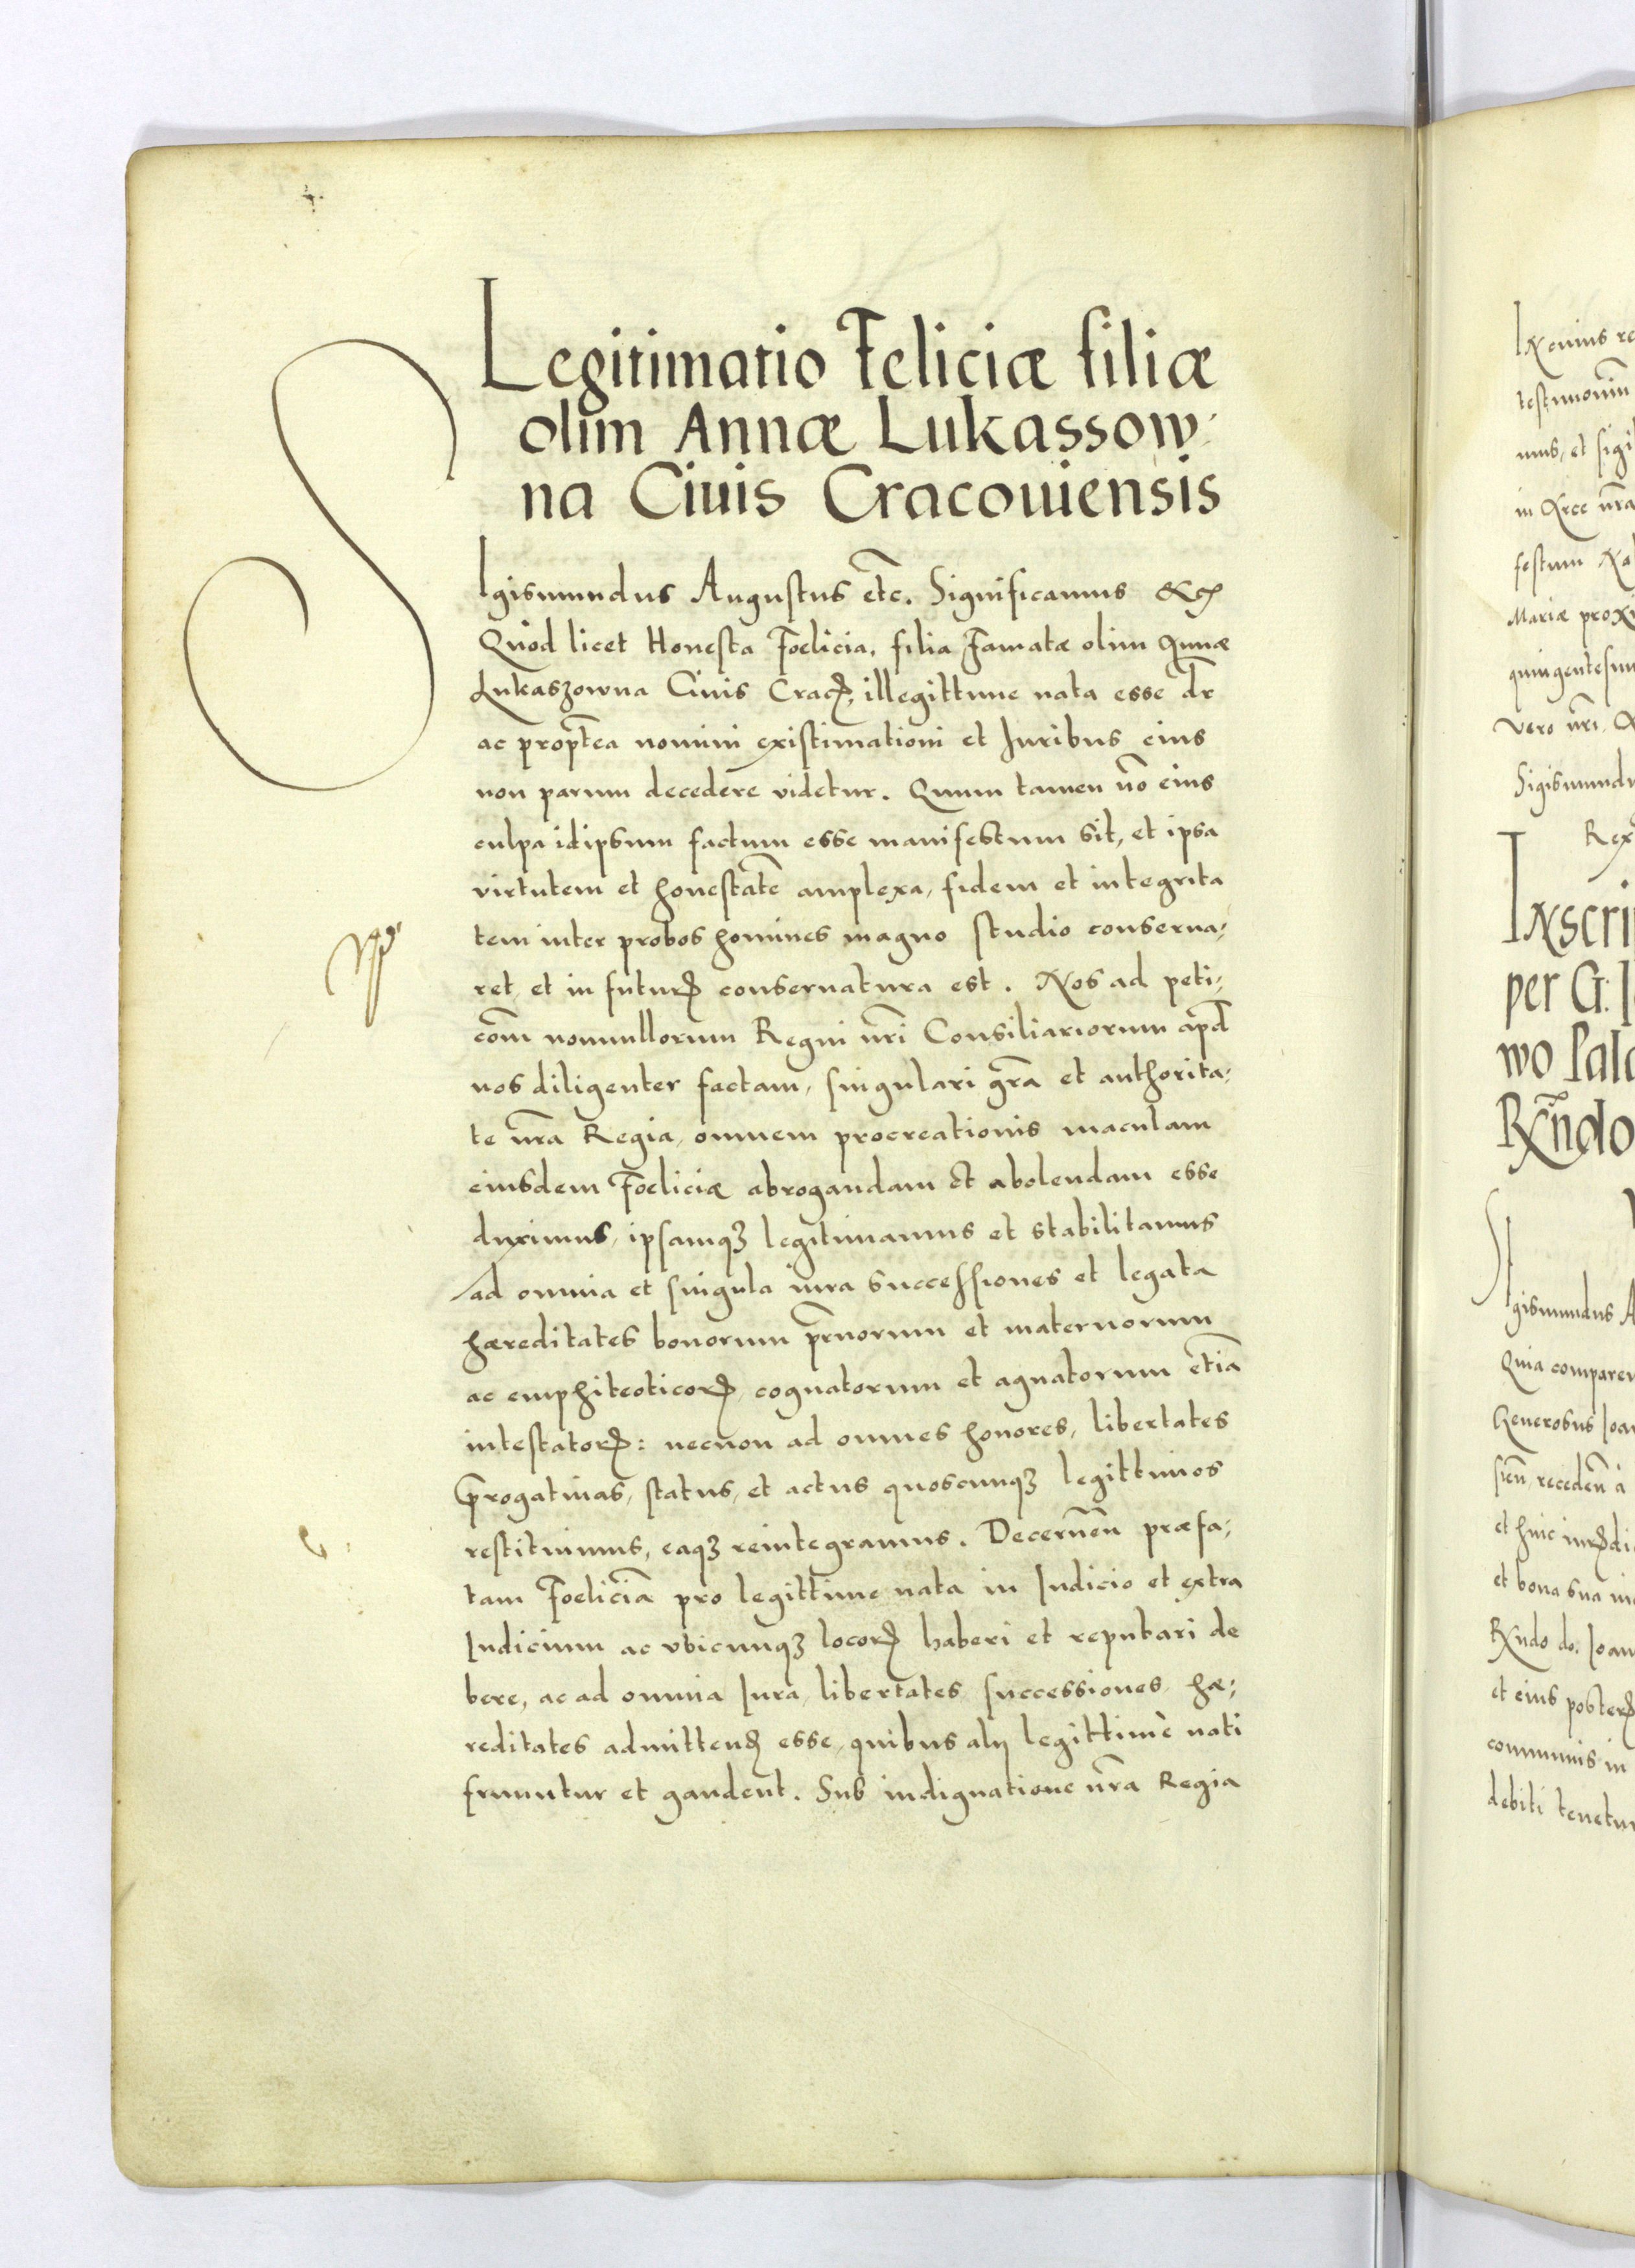 Legitimatio Feliciæ filiæ
olim Annæ Lukassow-
na Ciuis Cracouiensis
SIgismundus Augustus etc̃. Significamus &cꝫ
Quod licet Honesta Foelicia, filia Famatæ olim Annæ
Lukaszowna Ciuis Cracꝫ, illegittime nata esse dr̃
ac propt̃ea nomini existimationi et Iuribus eius
non parum decedere videtur. Quum tamen nõ eius
culpa idipsum factum esse manifestum sit, et ipsa
virtutem et honestatẽ amplexa, fidem et integrita
tem inter probos homines magno studio conserua-
ret, et in futurꝫ conseruatura est. Nos ad peti-
cõm nonnullorum Regni nr̃i Consiliariorum apd̃
nos diligenter factam, singulari gr̃a et authorita-
te nr̃a Regia, omnem procreationis maculam
eiusdem Foeliciæ abrogandam et abolendam esse
duximus, ipsamqꝫ legitimamus et stabilitamus
ad omnia et singula iura successiones et legata
hæreditates bonorum pr̃norum et maternorum
ac emphiteoticorꝫ cognatorum et agnatorum etiã
intestatorꝫ: necnon ad omnes honores, libertates
p̃rogatiuas, status, et actus quoscunqꝫ legittimos
restituimus, eaqꝫ reintegramus. Decernẽn præfa-
tam Foeliciã pro legittime nata in Iudicio et extra
Iudicium ac vbicunqꝫ locorꝫ haberi et reputari de
bere, ac ad omnia Iura, libertates successiones hæ-
reditates admittendꝫ esse, quibus alij legittimè nati
fruuntur et gaudent. Sub indignatione nr̃a Regia
Inscri
per G: I
wo Pala
Rx̃ndo
gismundus A
Quia comparen
Generosus Ioan
et bona sua
Rx̃ndo do. Ioan
et eius posterꝫ
communis in
debiti tenetur